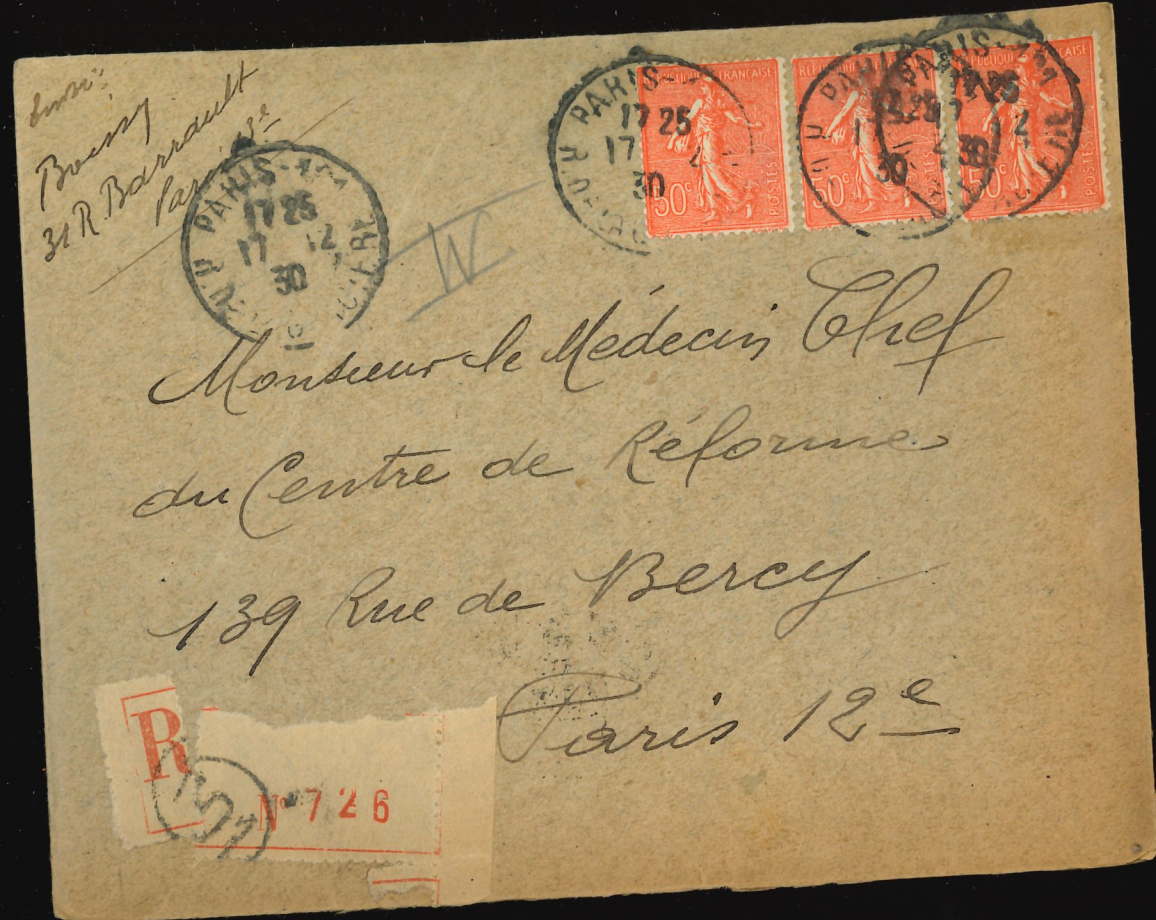 Boissy
31 R. Barrault
Paris 13e
PARIS
17 25
17 12
30
IV
PARIS
17 25
17
30
RÉPUBLIQUE FRANÇAISE
50c
POSTES
RÉPUBLIQUE
50c
PARIS
30
PARIS
RÉPUBLIQUE FRANÇAISE
50c
POSTES
Monsieur le Médecin Chef
du Centre de Réforme
139 Rue de Bercy
Paris 12e
R
No 726